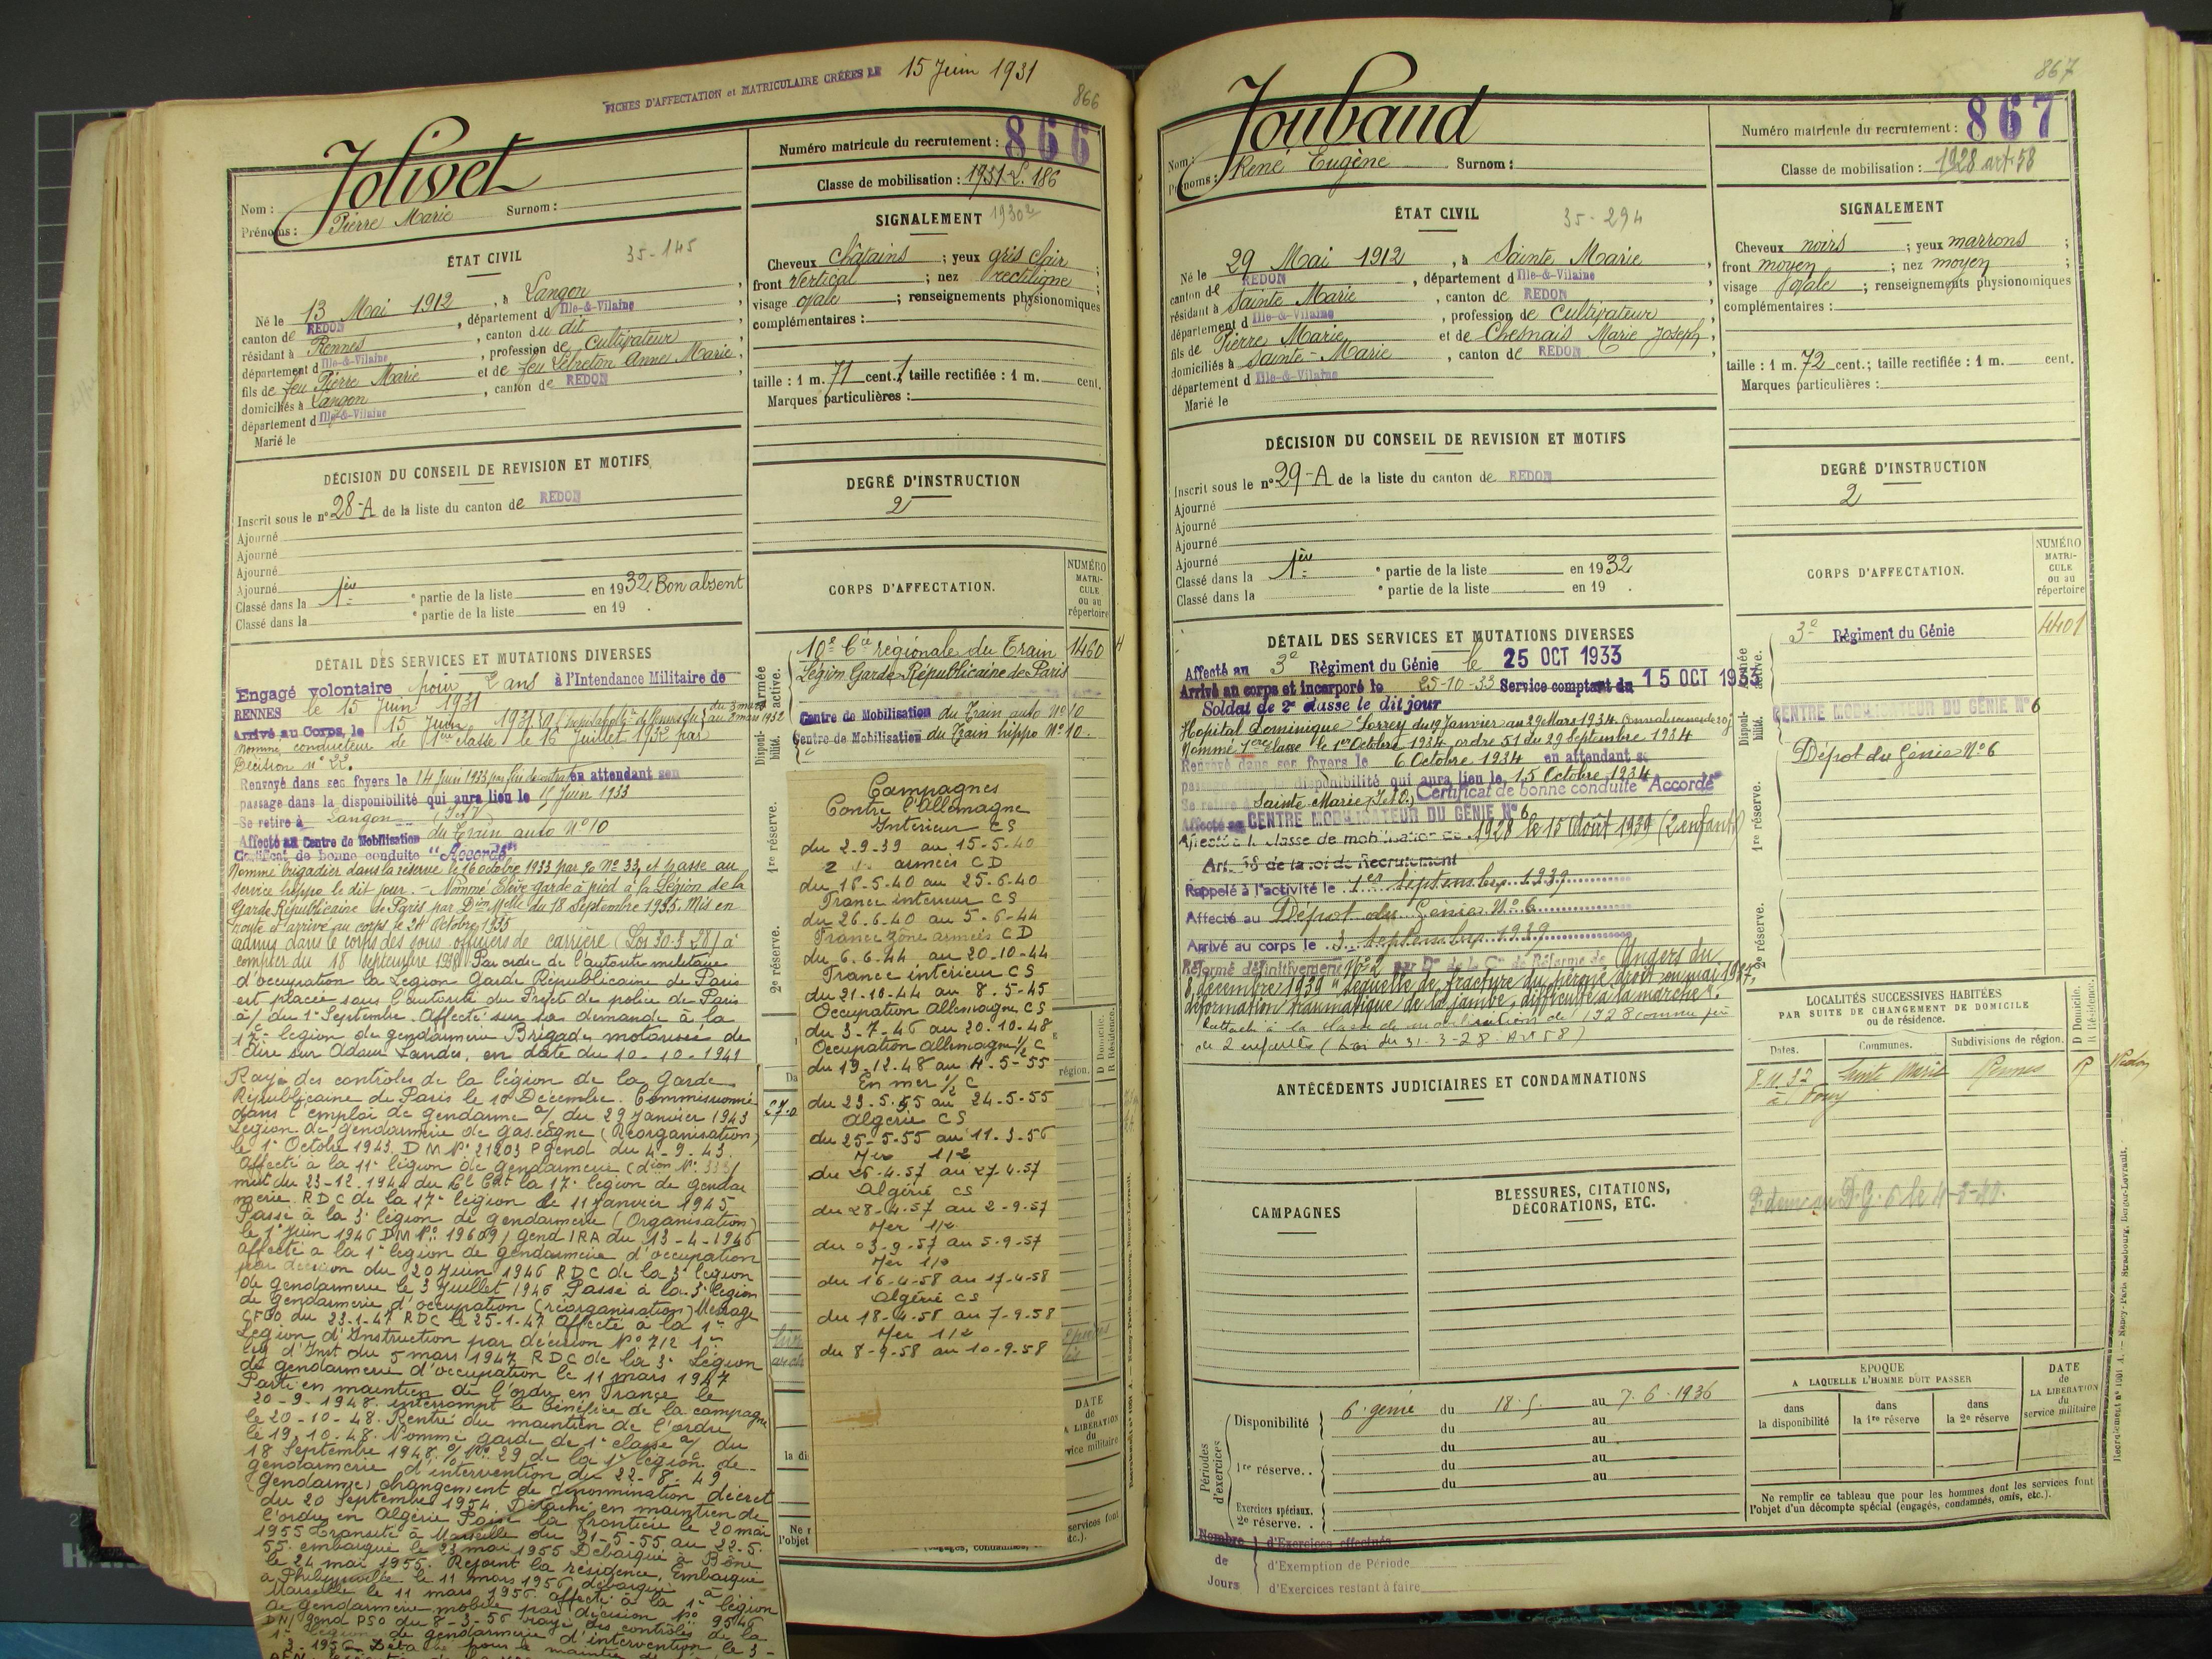 FICHES D'AFFECTATION et MATRICULAIRE CRÉÉES LE 15 Juin 1931
866
Nom : Jolivet
Prénoms : Pierre Marie Surnom :
Numéro matricule du recrutement : 866
Classe de mobilisation : 1931-L. 186
ÉTAT CIVIL
35-145
Né le 13 Mai 1912, à Langon,
canton de REDON, département d Ille-&-Vilaine
résidant à Rennes, canton du dit,
département d Ille-&-Vilaine, profession de Cultivateur
fils de feu Pierre Marie et de feu Lebreton Anne Marie,
domiciliés à Langon, canton de REDON,
département d Ille-&-Vilaine
Marié le
SIGNALEMENT
Cheveux châtains ; yeux gris clair ;
front Vertical ; nez rectiligne ;
visage ovale ; renseignements physionomiques
complémentaires :
taille : 1 m. 71 cent. ; taille rectifiée : 1 m. cent.
Marques particulières :
DÉCISION DU CONSEIL DE REVISION ET MOTIFS
Inscrit sous le n° 28-A de la liste du canton de REDON
Ajourné
Ajourné
Ajourné
Ajourné
Classé dans la 1ère partie de la liste en 1932 Bon absent
Classé dans la partie de la liste en 19 .
DEGRÉ D'INSTRUCTION
2
CORPS D'AFFECTATION.
NUMÉRO MATRICULE ou au répertoire
Armée active.
10e Cie régionale du Train 1460
Légion Garde Républicaine de Paris
Disponibilité.
Centre de Mobilisation du Train auto N° 10
Centre de Mobilisation du Train hippo N° 10.
1re réserve.
2e réserve.
DÉTAIL DES SERVICES ET MUTATIONS DIVERSES
Engagé volontaire pour 2 ans à l'Intendance Militaire de
RENNES le 15 Juin 1931
Arrivé au Corps, le 15 Juin 1931
Nommé conducteur de 1ère classe le 16 Juillet 1932 par
Décision n° 22.
Renvoyé dans ses foyers le 14 Juin 1933, par fin de contrat en attendant son
passage dans la disponibilité qui aura lieu le 15 Juin 1933
Se retire à Langon (I et V)
Affecté au Centre de Mobilisation du Train auto N° 10
Certificat de bonne conduite "Accordé"
Nommé brigadier dans la réserve le 16 octobre 1933 par % N° 33, et passe au
service hippo le dit jour. - Nommé Elève garde à pied à la Légion de la
Garde Républicaine de Paris par Dion Melle du 18 Septembre 1935. Mis en
route et arrivé au corps le 24 Octobre 1935
admis dans le corps des sous officiers de carrière (Loi 30-3-28) à
compter du 18 septembre 1938. Par ordre de l'autorité militaire
d'occupation la Légion Garde Républicaine de Paris
est placée sous l'autorité du Préfet de police de Paris
a/ du 1er Septembre. Affecté sur sa demande à la
17e légion de gendarmerie Brigade motorisée de
Aire sur Adour Landes, en date du 10-10-1941
Rayé des contrôles de la légion de la Garde
Républicaine de Paris le 10 Décembre. Commissionné
dans l'emploi de gendarme a/ du 29 Janvier 1943
Légion de gendarmerie de Gascogne (Réorganisation)
le 1er Octobre 1943. D M N° 21203 P gend du 4-9-43.
Affecté à la 11e légion de gendarmerie
mut du 23-12-1944 du la 17e légion de gendar
merie. RDC de la 17e légion le 11 Janvier 1945
Passé à la 3e légion de gendarmerie (Organisation)
le 1er Juin 1946 DM N° 19609/ gend IRA du 13-4-1946
affecté à la 1e légion de gendarmerie d'occupation
par décision du 20 Juin 1946 RDC de la 3e légion
de gendarmerie le 3 Juillet 1946 Passé à la 3e légion
de gendarmerie d'occupation (réorganisation) Message
du 23-1-47 RDC le 25-1-47. Affecté à la 1e
Légion d'Instruction par décision N° 712 1e
lég d'Inst du 5 mars 1947 RDC de la 3e Légion
de gendarmerie d'occupation le 11 mars 1947
Parti en maintien de l'ordre en France le
20-9-1948. interrompt le bénéfice de la campagne
le 20-10-48. Rentré du maintien de l'ordre
le 19-10-48. Nommé garde de 1e classe a/ du
18 Septembre 1948. % N° 29 de la 1e légion de
gendarmerie d'intervention du 22-8-49
Gendarme, changement de dénomination décret
du 20 Septembre 1954. Détaché en maintien de
l'ordre en Algérie Passe la frontière le 20 mai
1955 transite à Marseille du 21-5-55 au 22-5-
55. embarque le 23 mai 1955 Débarqué à Bône
le 24 mai 1955. Rejoint la résidence. Embarque
à Philippeville le 11 mars 1956 débarqué à
Marseille le 11 mars 1956. affecté à la 1e légion
de gendarmerie mobile par décision N° 9546
DN/ gend PSO du 8-3-56 rayé des contrôles de la
1e légion de gendarmerie d'intervention le 3-
Campagnes
Contre l'Allemagne
Intérieur CS
du 2-9-39 au 15-5-40
armées CD
du 16-5-40 au 25-6-40
France intérieur CS
du 26-6-40 au 5-6-44
France zône armées CD
du 6-6-44 au 20-10-44
France intérieur CS
du 21-10-44 au 8-5-45
Occupation Allemagne CS
du 3-7-46 au 20-10-48
Occupation Allemagne 1/2 C
du 19-12-48 au 4-5-55
En mer 1/2 C
du 23-5-55 au 24-5-55
Algérie CS
du 25-5-55 au 11-3-56
Mer 1/2
du 26-4-57 au 27-4-57
Algérie CS
du 28-4-57 au 2-9-57
Mer 1/2
du 03-9-57 au 5-9-57
Mer 1/2
du 16-4-58 au 17-4-58
Algérie CS
du 18-4-58 au 7-9-58
Mer 1/2
du 8-9-58 au 10-9-58
région.
D Domicile.
R Résidence.
DATE
de
LA LIBÉRATION
du
service militaire
867
Nom : Joubaud
Prénoms : René Eugène Surnom :
Numéro matricule du recrutement : 867
Classe de mobilisation : 1928 art. 58
ÉTAT CIVIL
35-294
Né le 29 Mai 1912, à Sainte Marie,
canton de REDON, département d Ille-&-Vilaine
résidant à Sainte Marie, canton de REDON,
département d Ille-&-Vilaine, profession de Cultivateur,
fils de Pierre Marie et de Chesnais Marie Joseph,
domiciliés à Sainte-Marie, canton de REDON,
département d Ille-&-Vilaine
Marié le
SIGNALEMENT
Cheveux noirs ; yeux marrons ;
front moyen ; nez moyen ;
visage ovale ; renseignements physionomiques
complémentaires :
taille : 1 m. 72 cent. ; taille rectifiée : 1 m. cent.
Marques particulières :
DÉCISION DU CONSEIL DE REVISION ET MOTIFS
Inscrit sous le n° 29-A de la liste du canton de REDON
Ajourné
Ajourné
Ajourné
Ajourné
Classé dans la 1ère partie de la liste en 1932
Classé dans la partie de la liste en 19 .
DEGRÉ D'INSTRUCTION
2
CORPS D'AFFECTATION.
NUMÉRO MATRICULE ou au répertoire
Armée active.
3e Régiment du Génie 4401
Disponibilité.
CENTRE MOBILISATEUR DU GÉNIE N° 6
Dépôt du Génie N° 6
1re réserve.
2e réserve.
DÉTAIL DES SERVICES ET MUTATIONS DIVERSES
Affecté au 3e Régiment du Génie le 25 OCT 1933
Arrivé au corps et incorporé le 25-10-33 Service comptant du 15 OCT 1933
Soldat de 2e classe le dit jour
Hôpital Dominique Larrey du 19 Janvier au 29 Mars 1934. Convalescence 20 j
Nommé 1ère classe le 1er Octobre 1934, ordre 51 du 29 Septembre 1934
Renvoyé dans ses foyers le 6 Octobre 1934 en attendant s
passage disponibilité qui aura lieu le 15 Octobre 1934
Se retire à Sainte-Marie (I et V.) Certificat de bonne conduite "Accordé"
Affecté au CENTRE MOBILISATEUR DU GÉNIE N° 6
Affecté à la classe de mobilisation de 1928 le 15 Août 1939 (2 enfants)
Art. 58 de la loi de Recrutement
Rappelé à l'activité le 1er septembre 1939
Affecté au Dépôt du Génie N° 6
Arrivé au corps le 3 septembre 1939
Réformé définitivement N° 2 par Don de la Con de Réforme de Angers du
8 décembre 1939 "Séquelle de fracture du péroné droit en mai 1937,
déformation traumatique de la jambe, difficulté à la marche".
Rattaché à la classe de mobilisation de 1928 comme père
de 2 enfants (Loi du 31-3-28 Art 58)
ANTÉCÉDENTS JUDICIAIRES ET CONDAMNATIONS
CAMPAGNES
BLESSURES, CITATIONS,
DÉCORATIONS, ETC.
LOCALITÉS SUCCESSIVES HABITÉES
PAR SUITE DE CHANGEMENT DE DOMICILE
ou de résidence.
Dates. Communes. Subdivisions de région.
D Domicile.
R Résidence.
Sainte Marie Rennes R Redon
Périodes d'exercices
Disponibilité 6e génie du 18.5. au 7.6.1936
du au
du au
1re réserve. . du au
du au
Exercices spéciaux.
2e réserve. .
ÉPOQUE
A LAQUELLE L'HOMME DOIT PASSER
dans la disponibilité
dans la 1re réserve
dans la 2e réserve
DATE
de
LA LIBÉRATION
du
service militaire
Ne remplir ce tableau que pour les hommes dont les services font
l'objet d'un décompte spécial (engagés, condamnés, omis, etc.).
Nombre de Jours
d'Exercices effectués
d'Exemption de Période
d'Exercices restant à faire
Nancy-Paris-Strasbourg, Berger-Levrault.